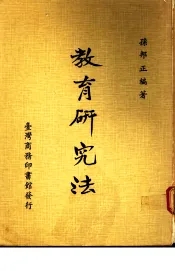 孫邦正編著
教育研究法
臺灣商務印書館發行